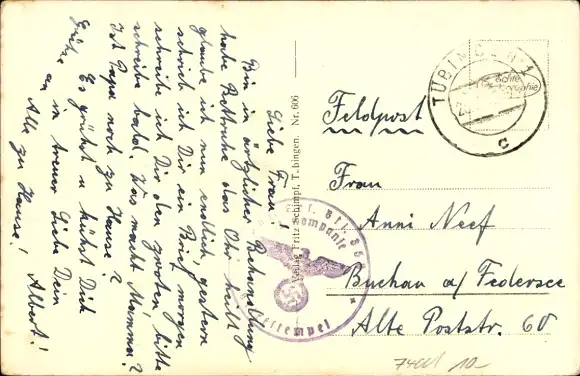 Liebe Frau!
Bin in ärztlicher Behandlung
habe Bettruhe das Ohr heilt
glaube ich nun endlich, gestern
schrieb ich Dir ein Brief, morgen
schreibe ich Dir den zweiten, bitte
schreibe bald. Was macht Mamma?
Ist Papa noch zu Hause?
Es grüßt u küßt Dich
in treuer Liebe Dein
Albert!
Grüße an
Alle zu Hause!
Verlag Fritz Schimpf, Tübingen. Nr. 606
TÜBINGEN 1
c
Echte
Feldpost
Frau
Anni Neef
Buchau a/ Federsee
Alte Poststr. 60
Kompanie
10.-